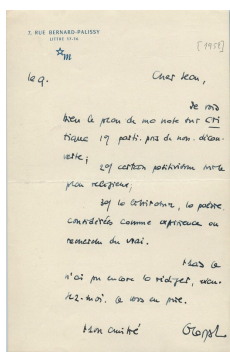 7, RUE BERNARD-PALISSY
LITTRÉ 17-16
m
[1951]
le 9.
Cher Jean,
Je vois
bien le plan de ma note sur Cri
tique 1º) parti. pris de non. décou-
verte ;
2º) certain positivisme sur le
plan religieux ;
3º) la littérature, la poésie
considérées comme expérience ou
recherche du vrai.
Mais je
n'ai pu encore la rédiger, excu-
sez-moi. Je vous en prie.
Mon amitié